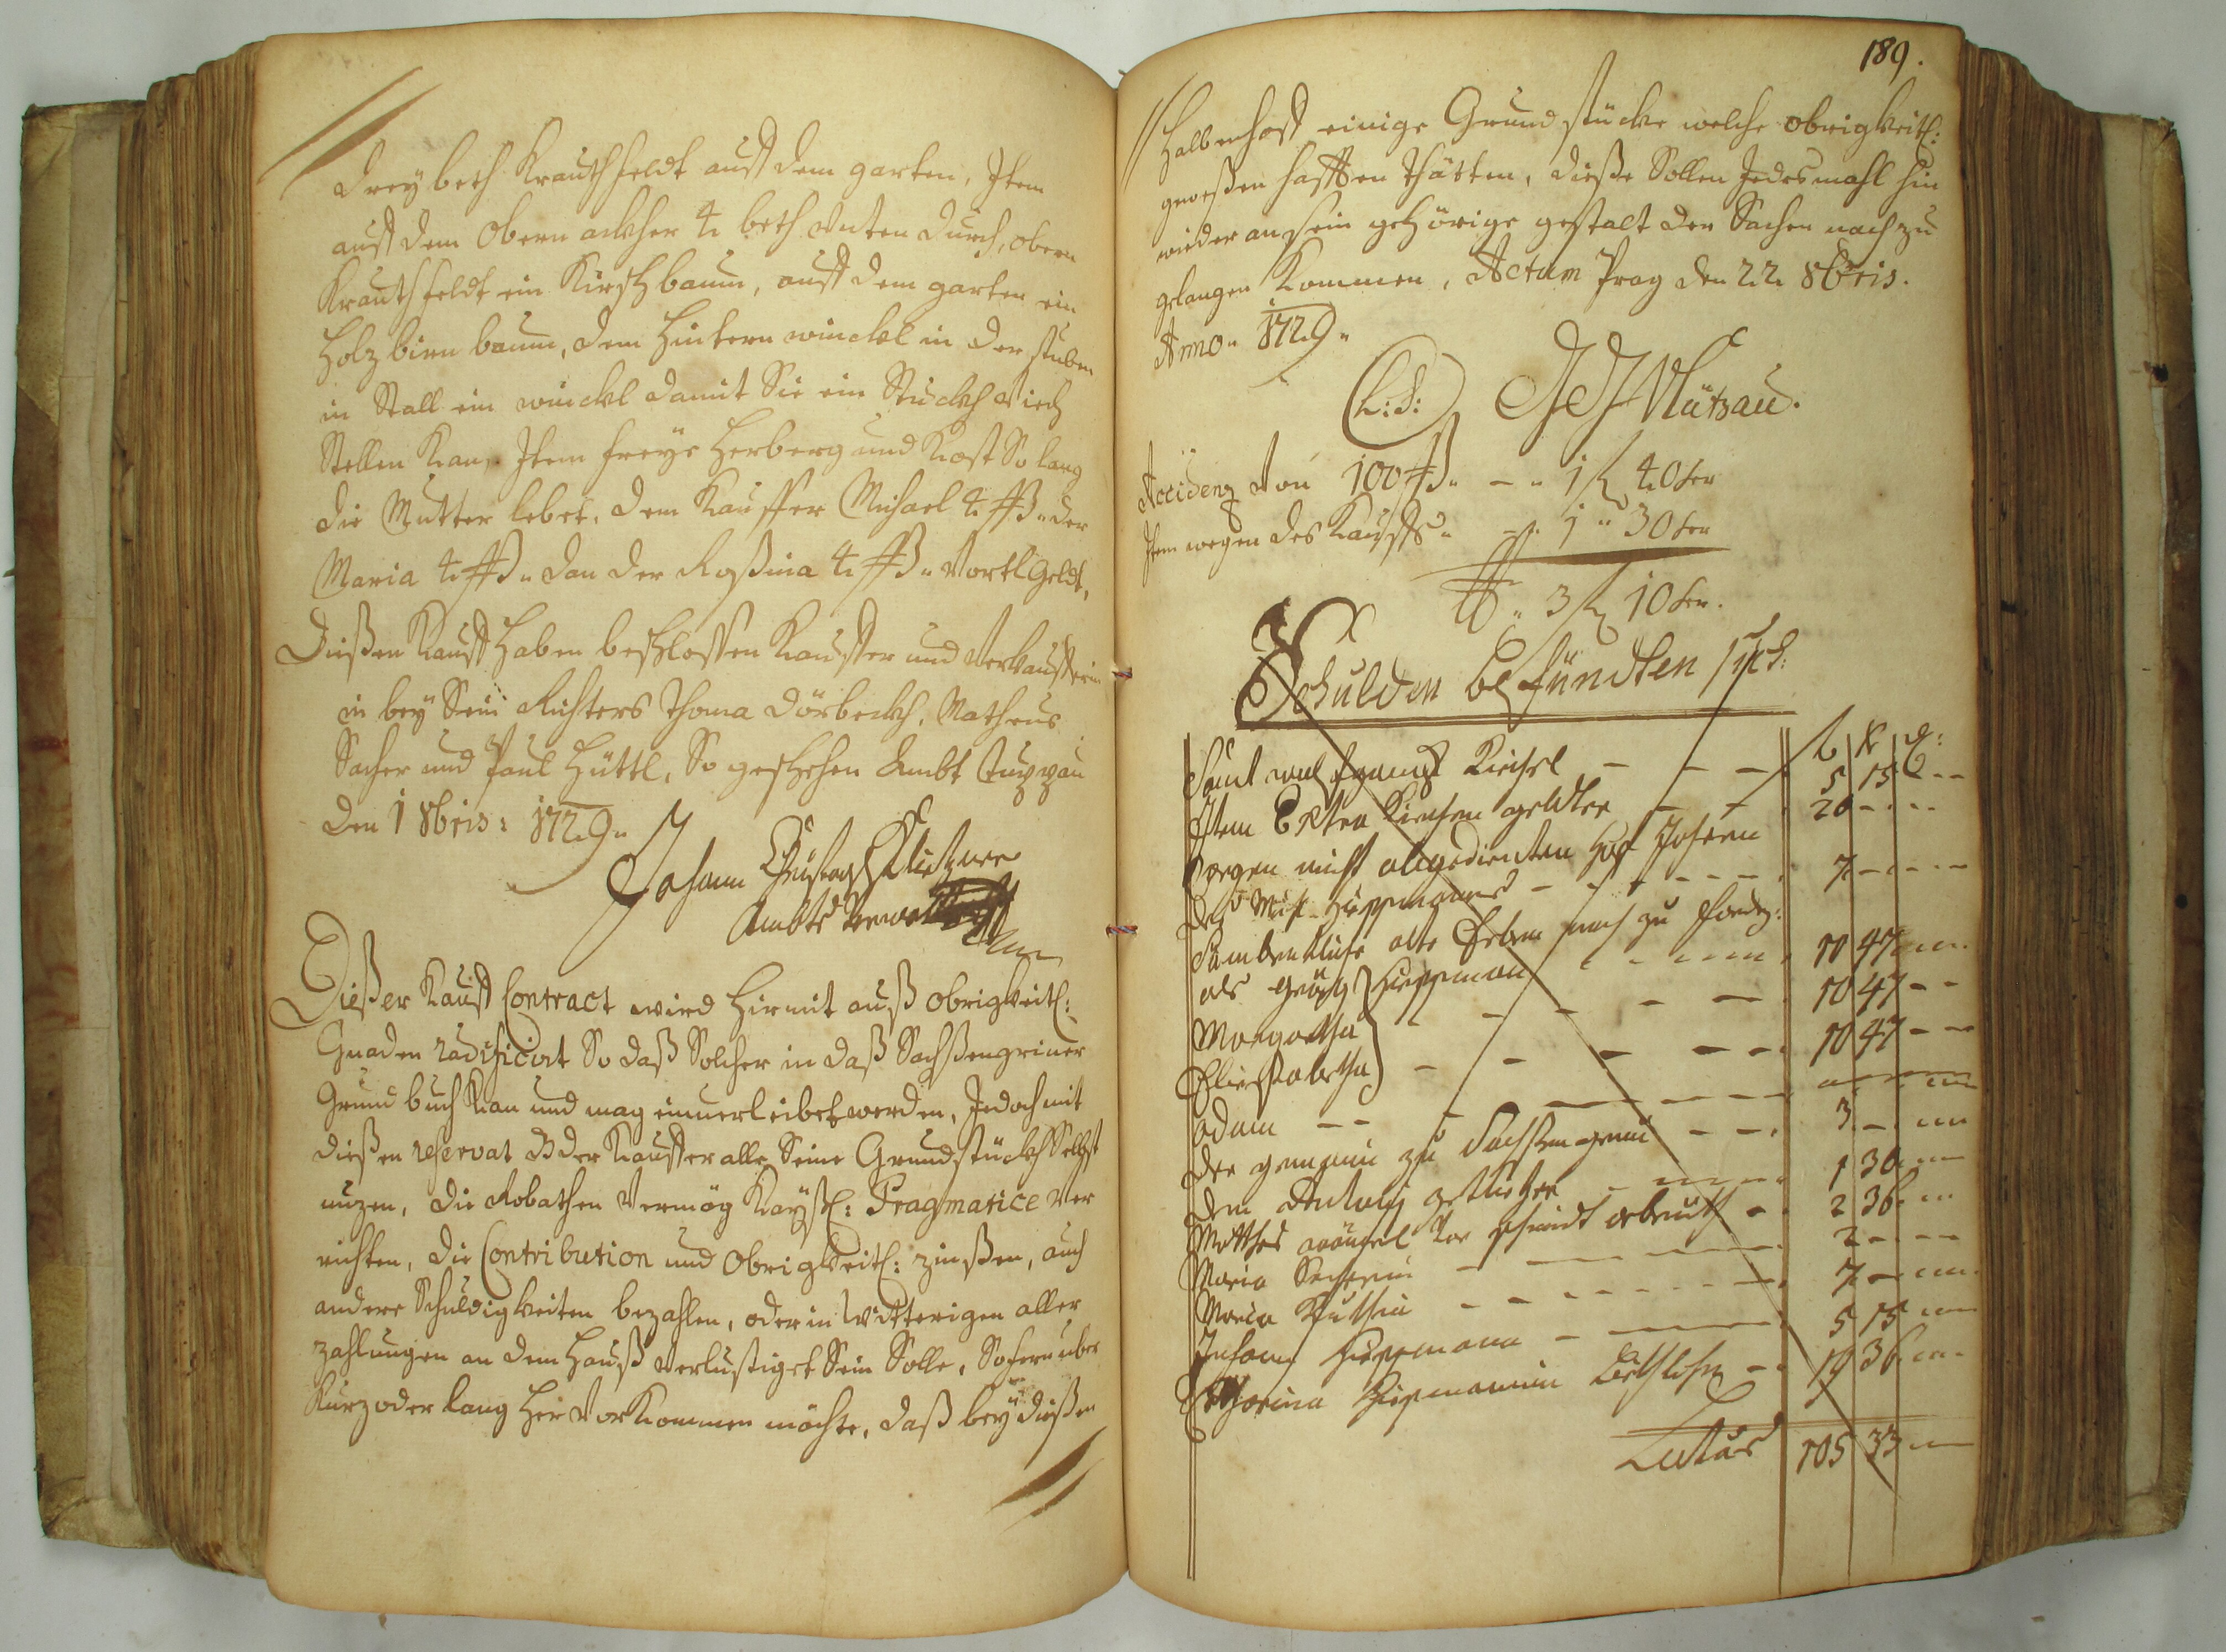 Drey beth Krauthfeldt auß dem garten, Item
auß dem Obern ackher 4 beth Unten durch, obern
Krauthfeldt ein Kirschbaum, auß dem garten ein
Holzbirn baum, dem Hintern winckl in der stuben
in Stall ein winckl damit Sie ein Stuckh Viech
Stellen Kan, Item freye Herberg und Kost So lang
die Mutter lebet, dem Kauffer Michael 4 ßß der
Maria 4 ßß dan der Roßina 4 ßß Vortl Geldt,
Dießen Kauff Haben beschlossen Kauffer und Verkaufferin
in bey Sein Richters Thoma Dörbeckh, Matheus
Sacher und Paul Hüttl, So geschehen Ambt Tuppau
den 1 8bris: 1729
Johann
Ambts Verwalter
Dießer Kauff Contract wird Hiermit auß Obrigkeitl:
Gnaden radificirt So daß Solcher in daß Sachßengrüner
Grund buch Kan und mag einverleibet werden, Jedoch mit
dießen reservat daß der Kauffer alle Seine Grundstückh Selbst
nuzen, die Robathen Vermög Kayßl: Pragmatice Ver
richten, die Contribution und Obrigkeitl: zinßen, auch
andere Schuldigkeiten bezahlen, oder in Widerigen aller
zahlungen an dem Hauß Verlustiget Sein Solle, Sofern über
Kurz oder lang Her Vor Kommen möchte, daß bey dießen
189.
Halbenhoff einige Grundstücke welche obrigkeitl:
geweßen hafften thätten, dieße Sollen Jedesmahl hin
wieder an sein gehörige gestalt der Sachen nach zu
gelangen Kommen, Actum Prag den 22 8bris.
Anno 1729
(L:S:)
Accidenz Von 100 ßß — 1 fl 40 kr
Item wegen des Kauffs 1 " 30 kr
3 fl 10 kr.
Schulden befündten sich:
fl kr
5 15
Item Extra geldter — 20
wegen nicht abgedienten Hof
7
alte Erben noch zu fordern:
als Hüppman 10 47
Margaretha 10 47
Eliesabetha 10 47
Adam
der gemein zu Sachßengrün 3
dem 1 30
Matthes schmidt arbeith 2 36
Maria 2
Maria 7
Johann Hüppmann 5 15
Catharina Hüpmannin 19 36
Latus 105 33